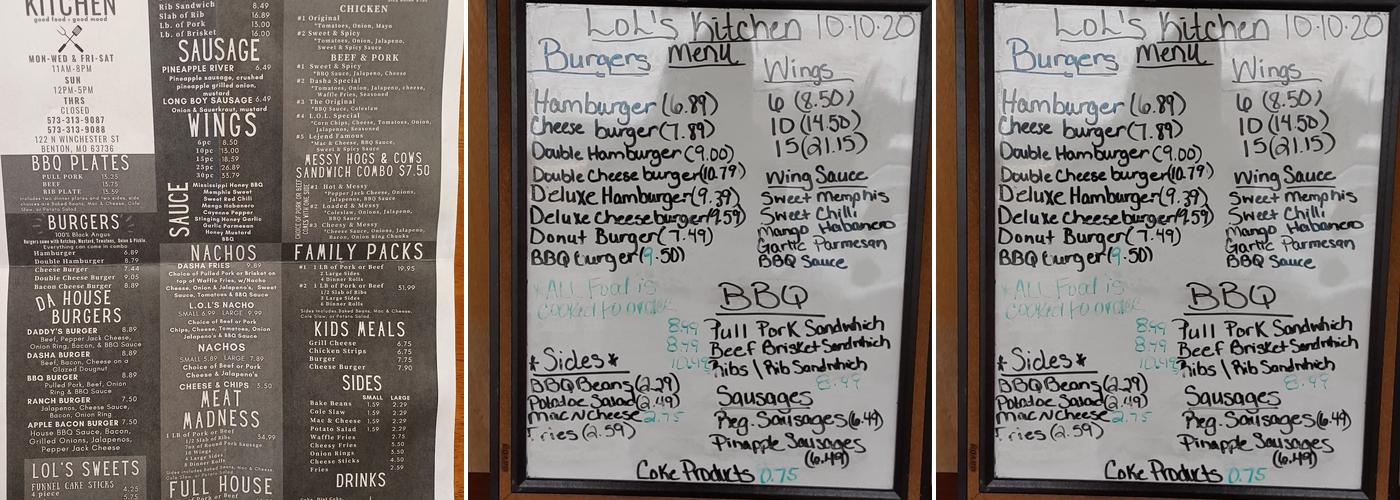 KITCHEN
good food • good mood
MON-WED & FRI-SAT
11AM-8PM
SUN
12PM-5PM
THRS
CLOSED
573-313-9087
573-313-9088
122 N WINCHESTER ST
BENTON, MO 63736
BBQ PLATES
PULL PORK 15.25
BEEF 15.75
RIB PLATE 15.59
BURGERS
100% Black Angus
Burgers come with Ketchup, Mustard, Tomatoes, Onion & Pickle.
Everything can come in combo
Hamburger 6.89
Double Hamburger 8.79
Cheese Burger 7.44
Double Cheese Burger 9.05
Bacon Cheese Burger 8.89
DA HOUSE
BURGERS
DADDY'S BURGER 8.89
Beef, Pepper Jack Cheese,
Onion Ring, Bacon, & BBQ Sauce
DASHA BURGER 8.89
Beef, Bacon, Cheese on a
Glazed Dougnut
BBQ BURGER 8.89
Pulled Pork, Beef, Onion
Ring & BBQ Sauce
RANCH BURGER 7.50
Jalapenos, Cheese Sauce,
Bacon, Onion Ring
APPLE BACON BURGER 7.50
House BBQ Sauce, Bacon,
Grilled Onions, Jalapenos,
Pepper Jack Cheese
LOL'S SWEETS
FUNNEL CAKE STICKS 4.25
4 piece 5.75
Rib Sandwich 8.49
Slab of Rib 16.89
Lb. of Pork 13.00
Lb. of Brisket 16.00
SAUSAGE
PINEAPPLE RIVER 6.49
Pineapple sausage, crushed
pineapple grilled onion,
mustard
LONG BOY SAUSAGE 6.49
Onion & Sauerkraut, mustard
WINGS
6pc 8.50
10pc 13.00
15pc 18.59
25pc 26.89
30pc 33.79
SAUCE
Mississippi Honey BBQ
Memphis Sweet
Sweet Red Chili
Mango Habanero
Cayenne Pepper
Stinging Honey Garlic
Garlic Parmesan
Honey Mustard
BBQ
NACHOS
DASHA FRIES 9.89
Choice of Pulled Pork or Brisket on
top of Waffle Fries, w/Nacho
Cheese, Onion & Jalapeno's, Sweet
Sauce, Tomatoes & BBQ Sauce
L.O.L.'S NACHO
SMALL 6.99 LARGE 9.99
Choice of Beef or Pork
Chips, Cheese, Tomatoes, Onion
Jalapeno's & BBQ Sauce
NACHOS
SMALL 5.89 LARGE 7.89
Choice of Beef or Pork
Cheese & Jalapeno's
CHEESE & CHIPS 3.50
MEAT
MADNESS
1 LB of Pork or Beef 54.99
1/2 Slab of Ribs
7oz of Round Pork Sausage
10 Wings
4 Large Sides
8 Dinner Rolls
FULL HOUSE
CHICKEN
#1 Original
*Tomatoes, Onion, Mayo
#2 Sweet & Spicy
*Tomatoes, Onion, Jalapeno,
Sweet & Spicy Sauce
BEEF & PORK
#1 Sweet & Spicy
*BBQ Sauce, Jalapeno, Cheese
#2 Dasha Special
*Tomatoes, Onion, Jalapeno, cheese,
Waffle Fries, Seasoned
#3 The Original
*BBQ Sauce, Coleslaw
#4 L.O.L. Special
*Corn Chips, Cheese, Tomatoes, Onion,
Jalapenos, Seasoned
#5 Lejend Famous
*Mac & Cheese, BBQ Sauce,
Sweet & Spicy Sauce
MESSY HOGS & COWS
SANDWICH COMBO $7.50
#1 Hot & Messy
*Pepper Jack Cheese, Onions,
Jalapenos, BBQ Sauce
#2 Loaded & Messy
*Coleslaw, Onions, Jalapenos,
BBQ Sauce
#3 Cheesy & Messy
*Cheese Sauce, Onions, Jalapeno,
Bacon, Onion Ring Chunks
FAMILY PACKS
#1 1 LB of Pork or Beef 19.95
2 Large Sides
4 Dinner Rolls
#2 1 LB of Pork or Beef 31.99
1/2 Slab of Ribs
3 Large Sides
6 Dinner Rolls
Sides includes Baked Beans, Mac & Cheese,
Cole Slaw, or Potato Salad
KIDS MEALS
Grill Cheese 6.75
Chicken Strips 6.75
Burger 7.75
Cheese Burger 7.90
SIDES
SMALL LARGE
Bake Beans 1.59 2.29
Cole Slaw 1.59 2.29
Mac & Cheese 1.59 2.29
Potato Salad 1.59 2.29
Waffle Fries 2.75
Cheesy Fries 3.50
Onion Rings 5.50
Cheese Sticks 4.50
Fries 2.59
DRINKS
LOL's Kitchen 10.10.20
Menu
Burgers
Hamburger (6.89)
Cheese burger (7.89)
Double Hamburger (9.00)
Double Cheese burger (10.79)
Deluxe Hamburger (9.39)
Deluxe Cheeseburger (9.59)
Donut Burger (7.49)
BBQ burger (9.50)
* ALL Food is
cooked to order
*Sides*
BBQ Beans (2.29)
Potatoe Salad (2.49)
Mac N Cheese 2.75
Fries (2.59)
Wings
6 (8.50)
10 (14.50)
15 (21.15)
Wing Sauce
Sweet Memphis
Sweet Chilli
Mango Habanero
Garlic Parmesan
BBQ Sauce
BBQ
8.49 Pull Pork Sandwhich
8.49 Beef Brisket Sandwhich
10.49 Ribs / Rib Sandwhich
8.49
Sausages
Reg. Sausages (6.49)
Pinapple Sausages
(6.49)
Coke Products 0.75
LOL's Kitchen 10.10.20
Menu
Burgers
Hamburger (6.89)
Cheese burger (7.89)
Double Hamburger (9.00)
Double Cheese burger (10.79)
Deluxe Hamburger (9.39)
Deluxe Cheeseburger (9.59)
Donut Burger (7.49)
BBQ burger (9.50)
* ALL Food is
cooked to order
*Sides*
BBQ Beans (2.29)
Potatoe Salad (2.49)
Mac N Cheese 2.75
Fries (2.59)
Wings
6 (8.50)
10 (14.50)
15 (21.15)
Wing Sauce
Sweet Memphis
Sweet Chilli
Mango Habanero
Garlic Parmesan
BBQ Sauce
BBQ
8.49 Pull Pork Sandwhich
8.49 Beef Brisket Sandwhich
10.49 Ribs / Rib Sandwhich
8.49
Sausages
Reg. Sausages (6.49)
Pinapple Sausages
(6.49)
Coke Products 0.75